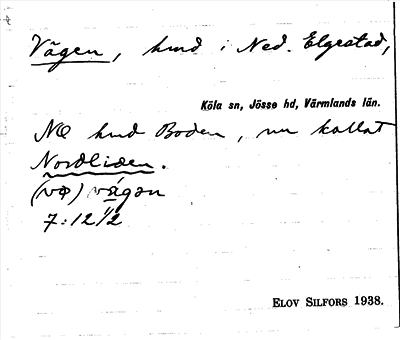 Vägen, hmd i Ned. Elgestad,
Köla sn, Jösse hd, Värmlands län.
NO hmd Boden, nu kallat
Nordliden.
vägən
7:12 1/2
ELOV SILFORS 1938.